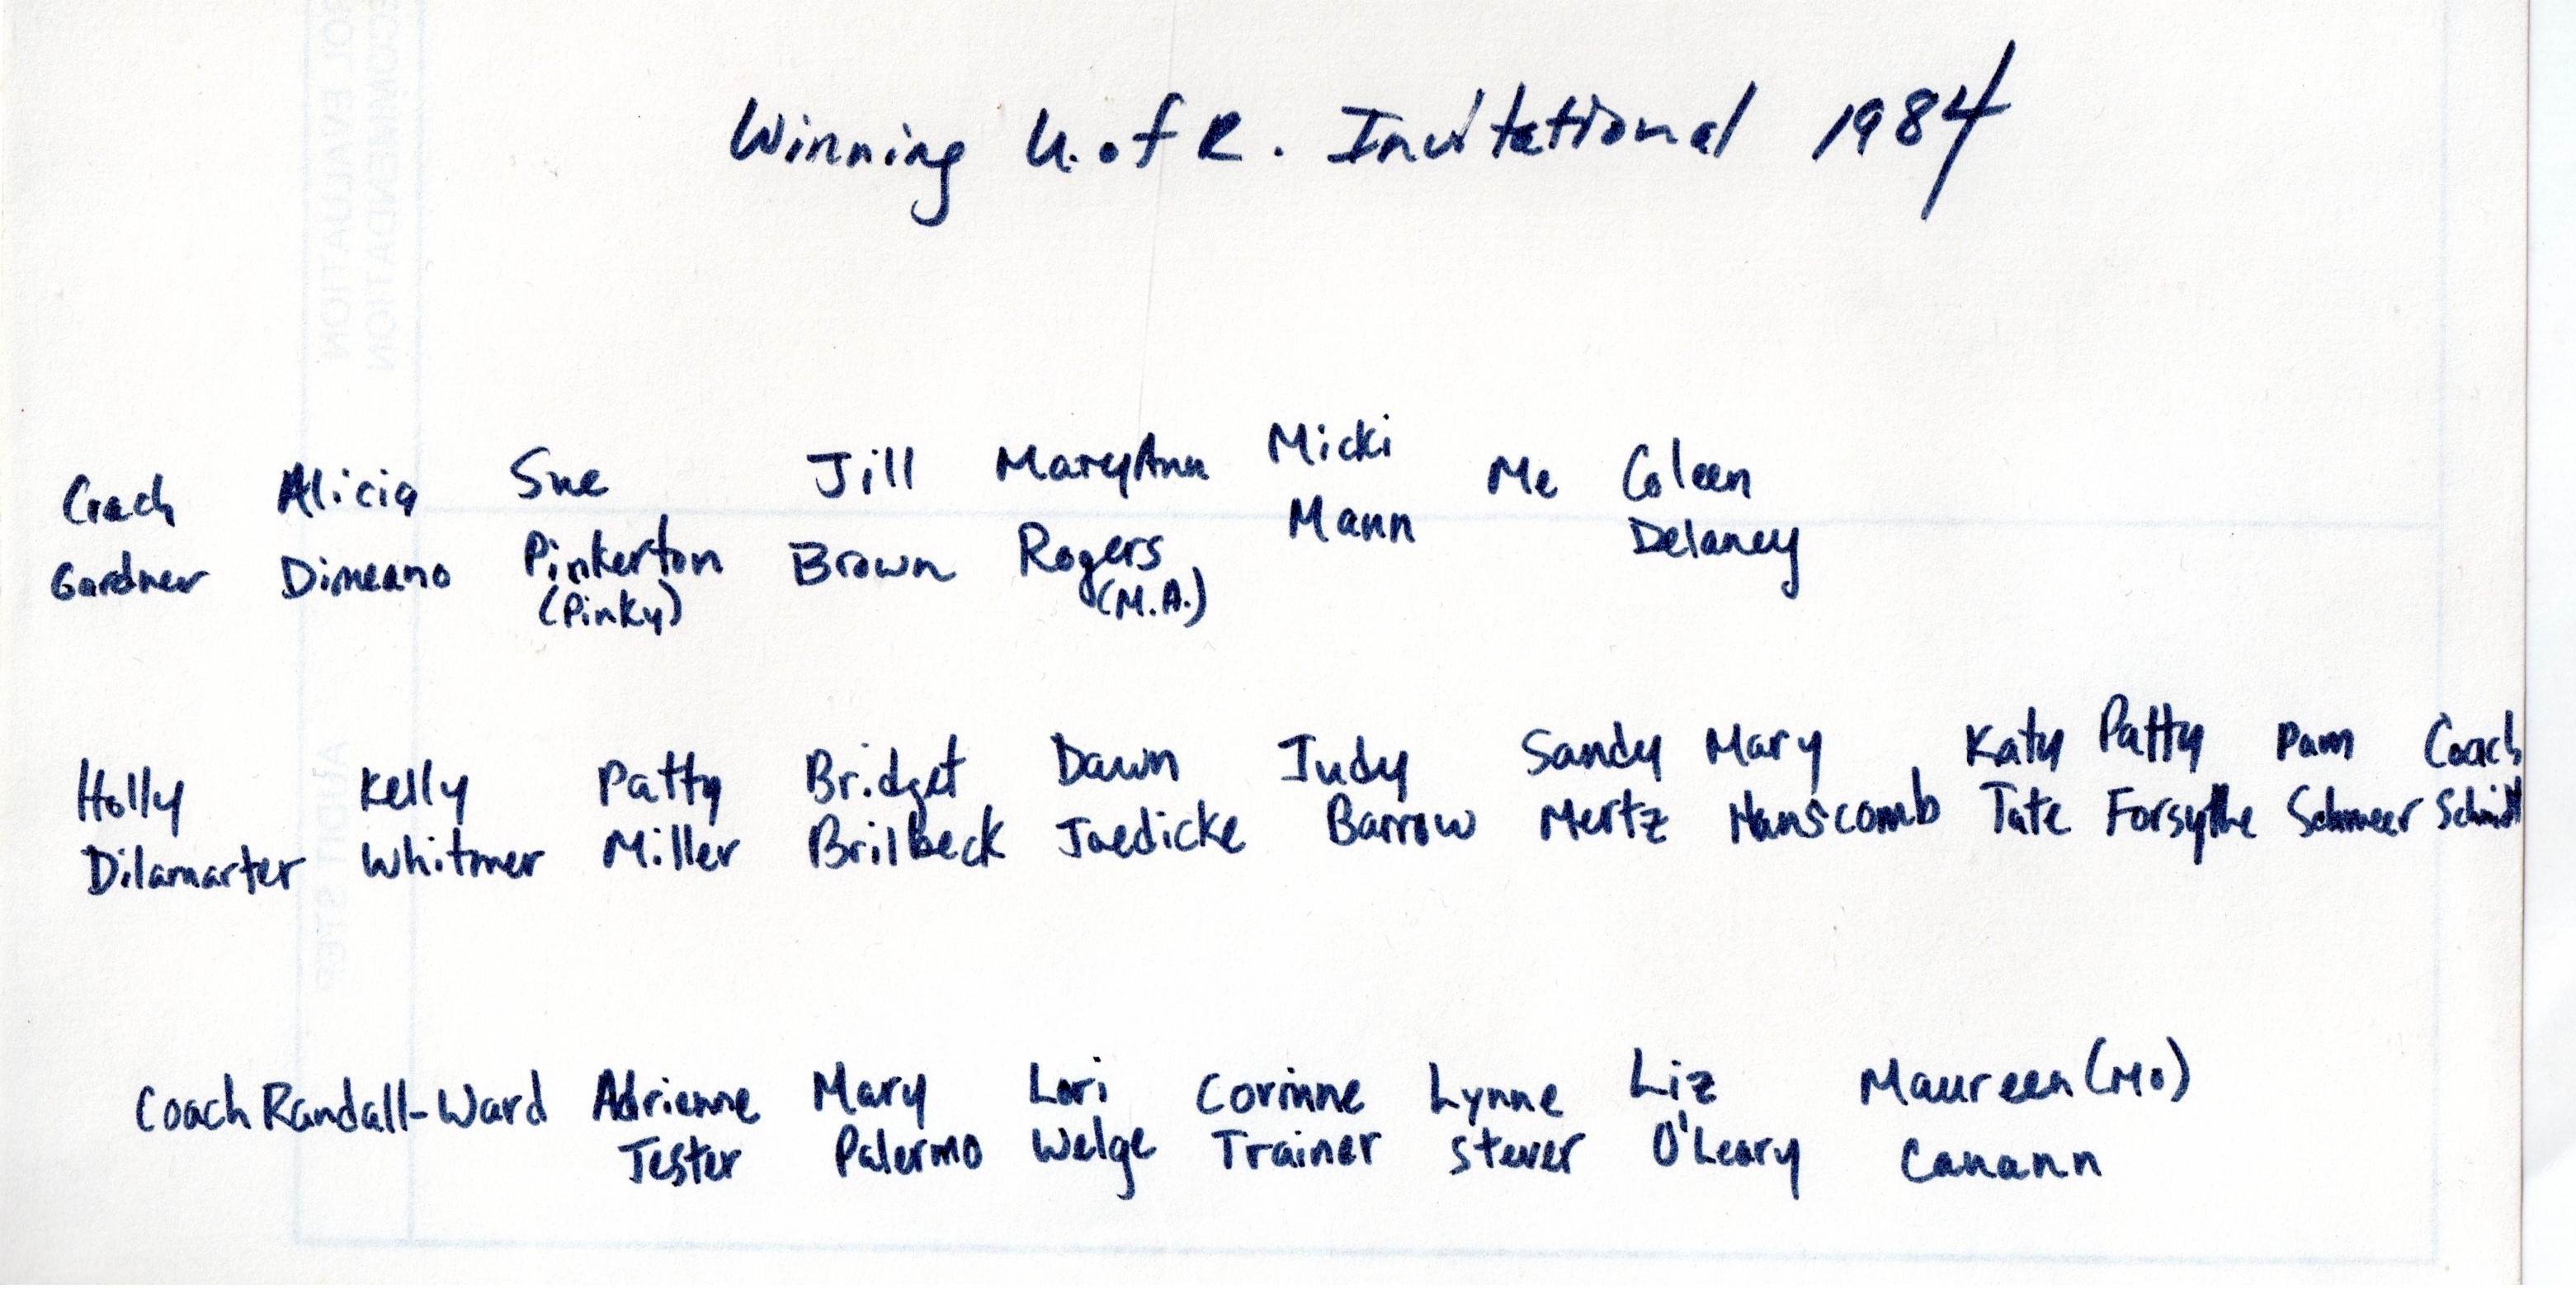 Winning U. of R. Invitational 1984
Coach Alicia Sue Jill MaryAnn Micki Me Coleen
Gardner Dimeano Pinkerton Brown Rogers Mann Delaney
(Pinky) (M.A.)
Holly Kelly Patty Bridget Dawn Judy Sandy Mary Katy Patty Pam Coach
Dilamarter Whitmer Miller Brilbeck Jaedicke Barrow Mertz Hanscomb Tate Forsythe Schmeer Schmidt
Coach Randall-Ward Adrienne Mary Lori Corinne Lynne Liz Maureen (Mo)
Tester Palermo Welge Trainer Stever O'Leary Canann
ECOMMENDATION
ROL EVALUATION
AUDIT STEP